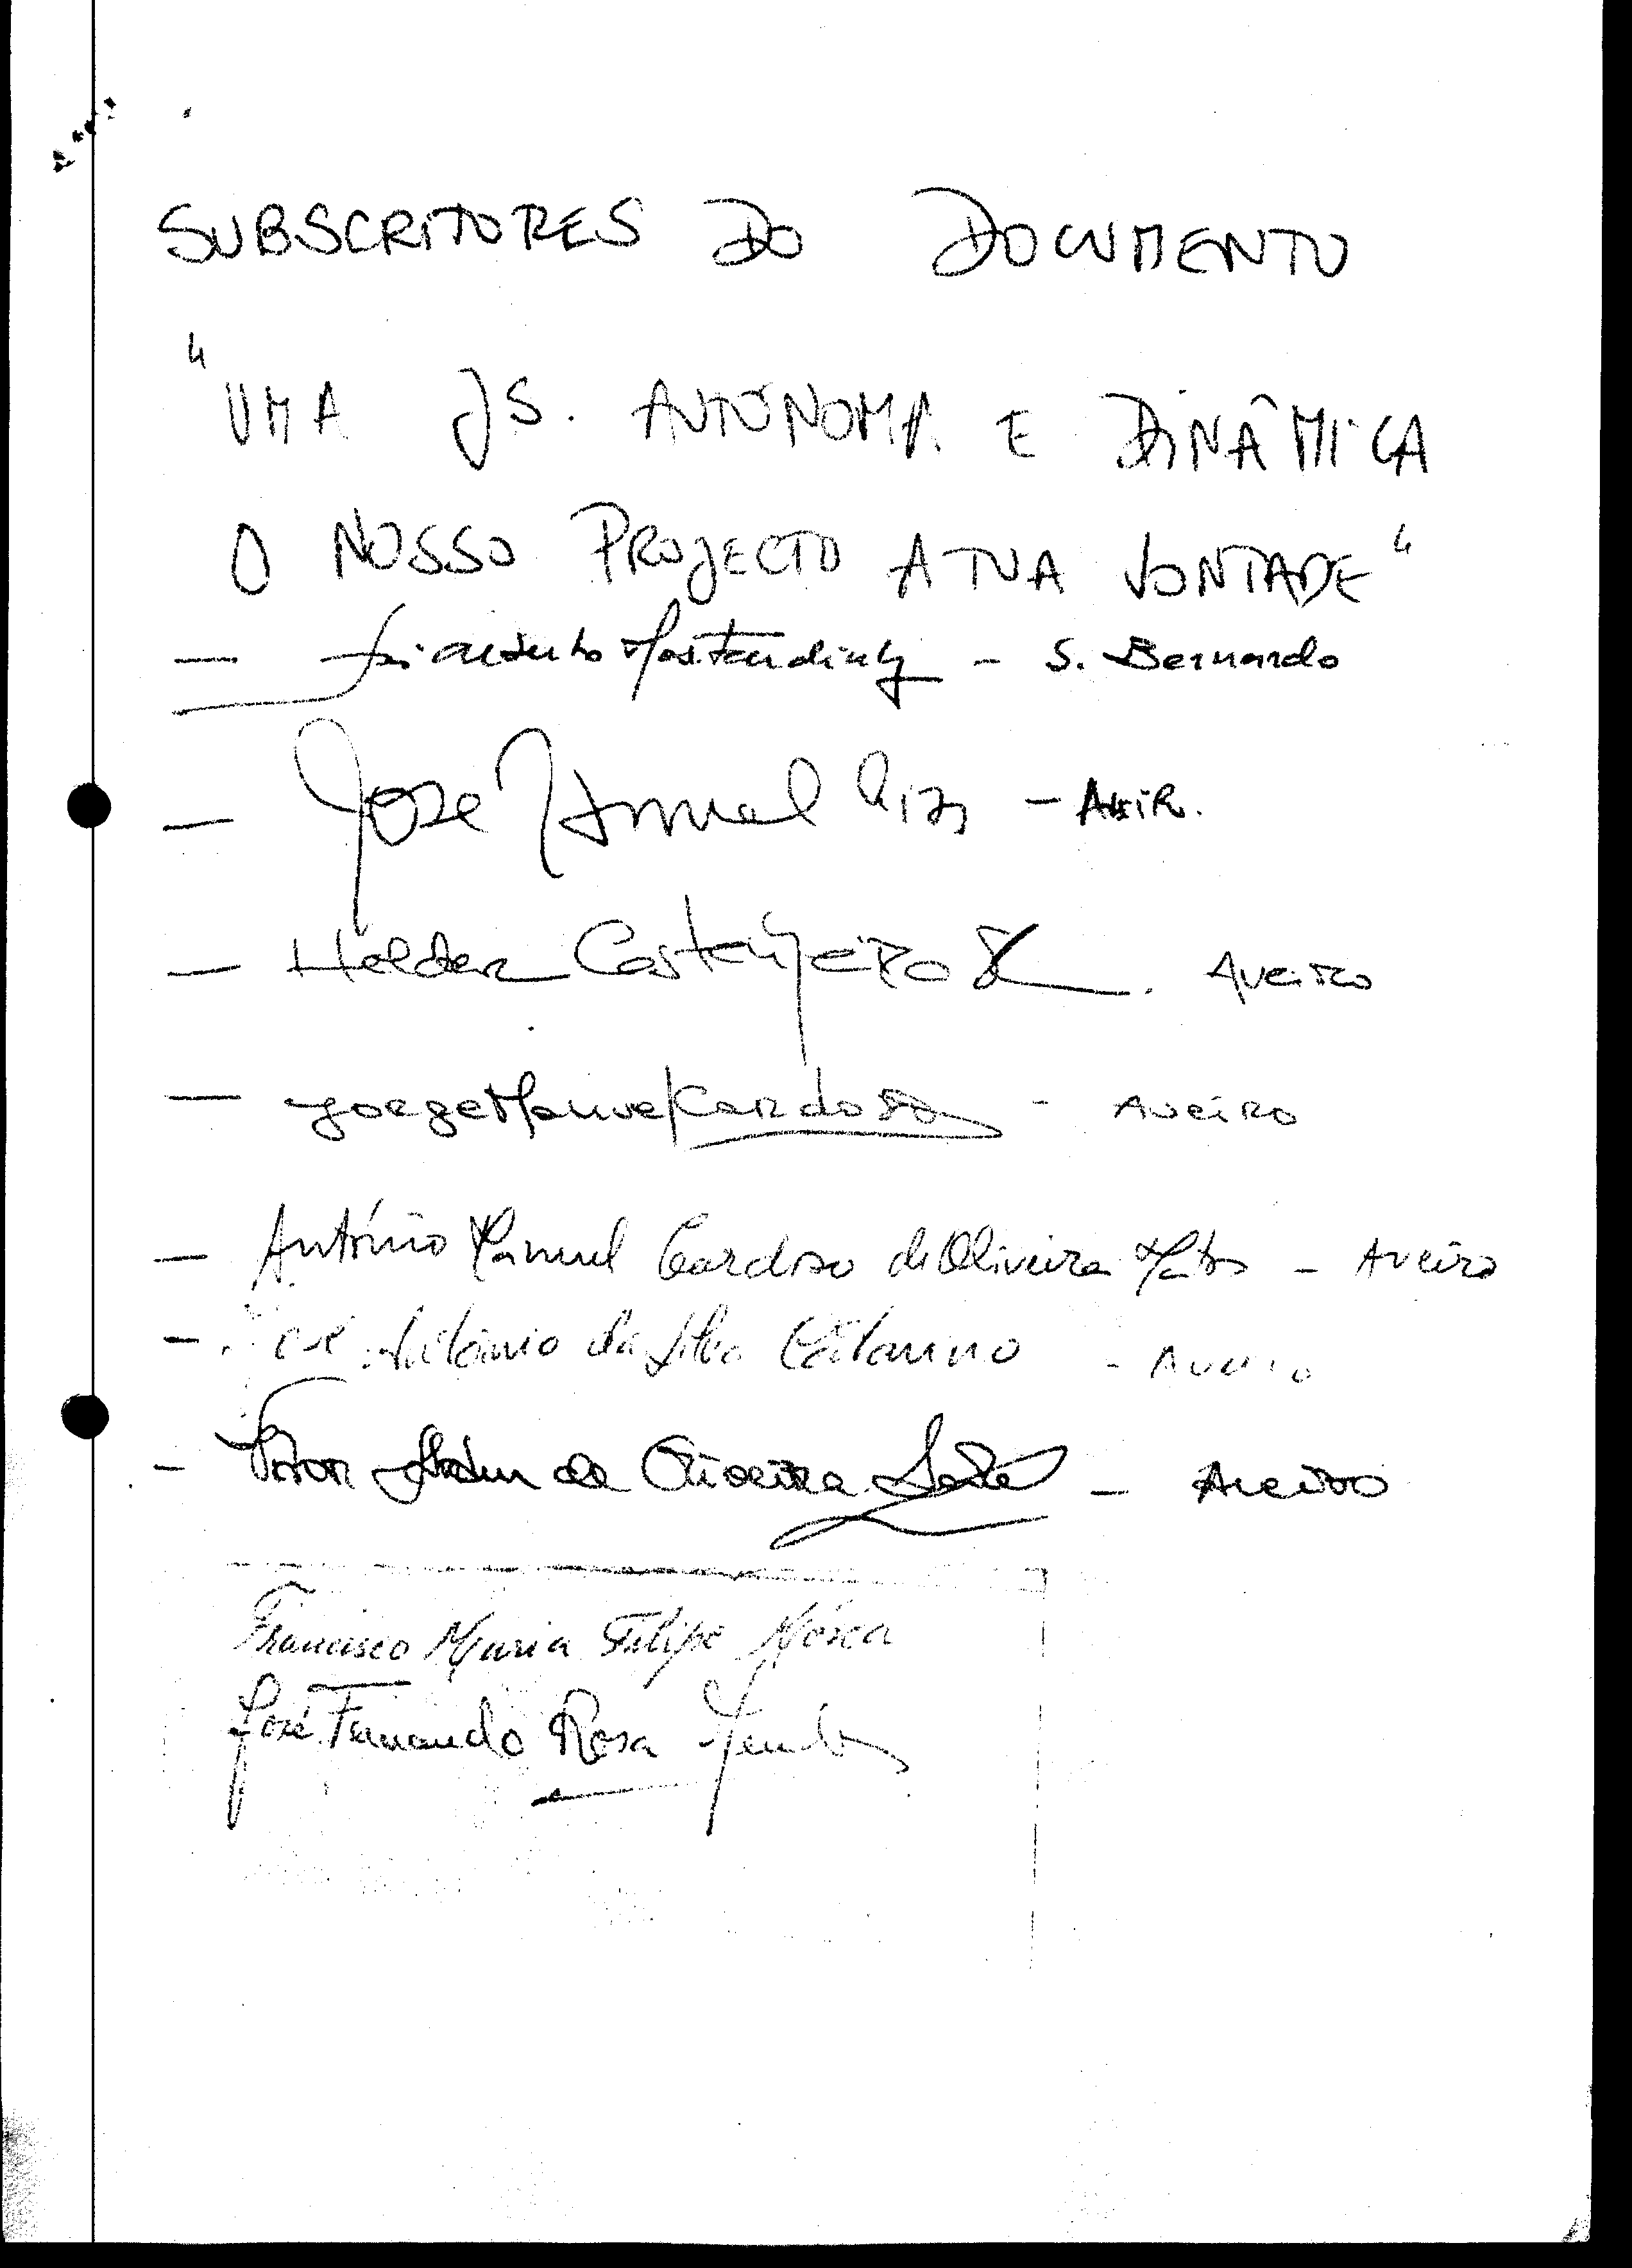 SUBSCRITORES DO DOCUMENTO
"UMA JS. AUTÓNOMA E DINÂMICA
O NOSSO PROJECTO A TUA VONTADE"
— - S. Bernardo
— José Manuel
— Helder Castenheiro . Aveiro
— Jorge Manuel Cardoso - Aveiro
— António Manuel Cardoso de Oliveira Matos - Aveiro
— António da Silva - Aveiro
— de Oliveira - Aveiro
Francisco Maria Filipe
José Fernando Rosa Mendes